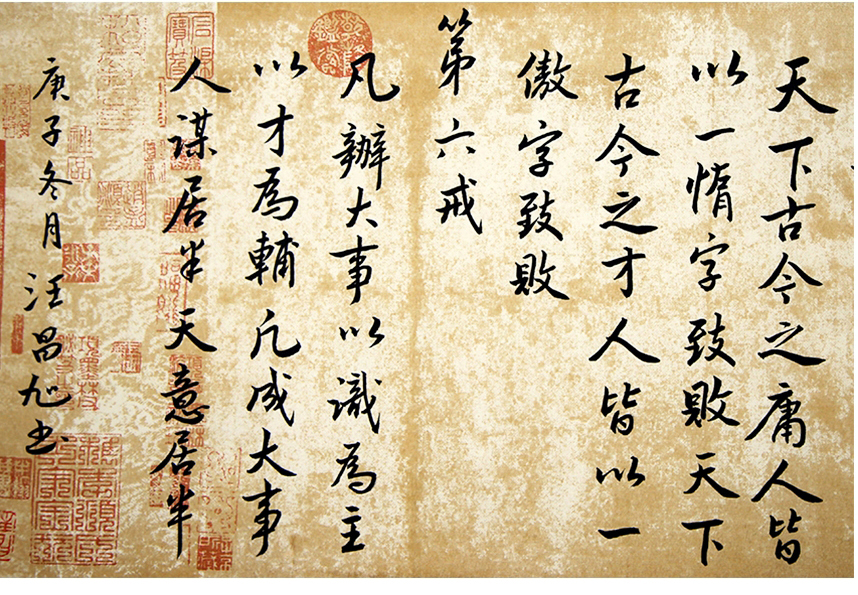 天下古今之庸人皆
以一惰字致敗天下
古今之才人皆以一
傲字致敗
第六戒
凡辦大事以識為主
以才為輔凡成大事
人謀居半天意居半
庚子冬月汪昌旭书